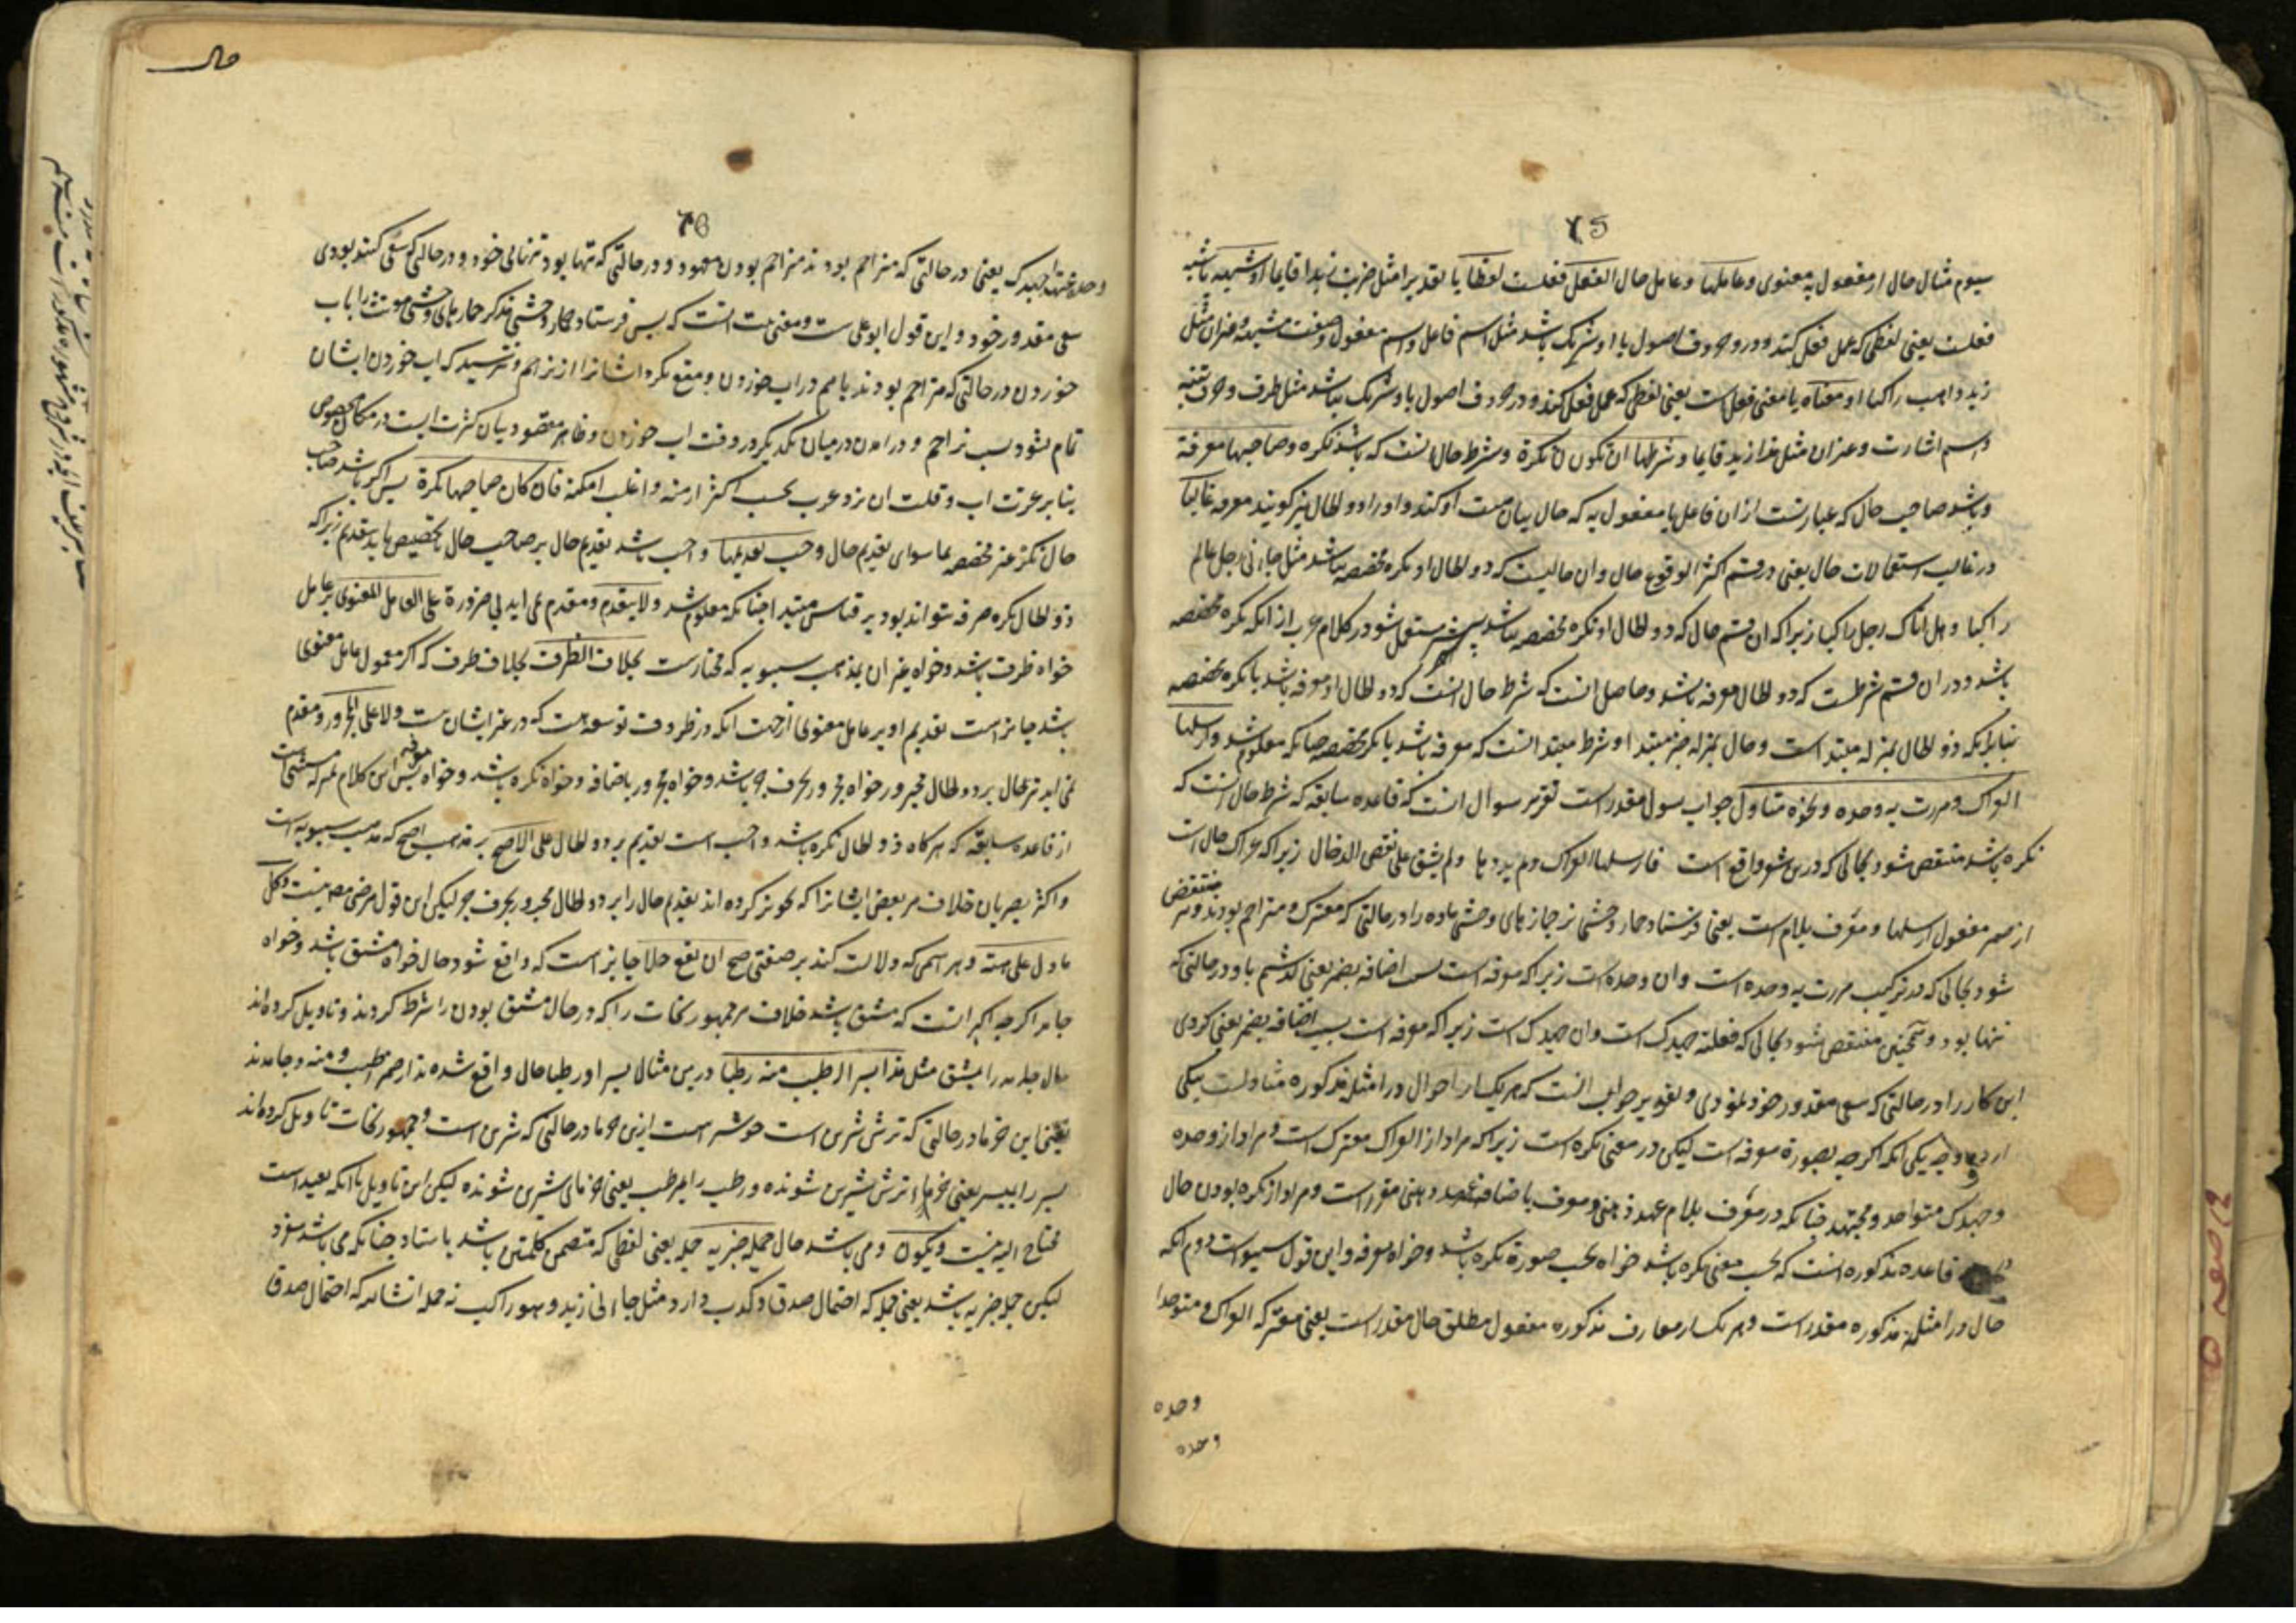 75
سیوم مثال حال از مفعول به معنوی وعاملها وعامل حال الفعل فعلست لفظا یا تقدیرا مثل ضربت زیدا قایما او شبهه یا شبه
فعلست یعنی لفظی که عمل فعل کند ودر حروف اصول با او شریک باشد مثل اسم فاعل واسم مفعول وصفت مشبهه وغیر ان مثل
زید ذاهب راکبا او معناه یا معنی فعل است یعنی لفظی که عمل فعل کند ودر حروف اصول با او شریک نباشد مثل ظرف وحروف تنبیه
واسم اشارت وغیر ان مثل هذا زید قایما وشرطها ان تکون نکرة وشرط حال انست که باشد نکره وصاحبها معرفة
وباشد صاحب حال که عبارتست از ان فاعل یا مفعول به که حال بیان هیئت او کند واو را ذو الحال نیز گویند معرفه غالبا
در غالب استعمالات حال یعنی در قسم اکثر الوقوع حال وان حالیست که ذو الحال او نکره مخصصه نباشد مثل جاءنی رجل عالم
راکبا وهل اتاک رجل راکبا زیرا که ان قسم حال که ذو الحال او نکره مخصصه نباشد بیشتر مستعمل شود در کلام عرب از انکه نکره مخصصه
باشد ودر ان قسم شرطست که ذو الحال معرفه باشد وحاصل انست که شرط حال انست که ذو الحال او معرفه باشد یا نکره مخصصه
بنابرانکه ذو الحال بمنزله مبتدا است وحال بمنزله خبر مبتدا وشرط مبتدا انست که معرفه باشد یا نکره مخصصه چنانکه معلوم شد وارسلها
العراک ومررت به وحده ونحوه متاول جواب سوال مقدر است تقریر سوال انست که قاعده سابقه که شرط حال انست که
نکره باشد منتقض شود بحالی که درین شعر واقع است فارسلها العراک ولم یذدها ولم یشفق علی نغص الدخال زیرا که عراک حال است
از ضمیر مفعول ارسلها ومعرف بلام است یعنی فرستاد حمار وحشی نر حمارهای وحشی ماده را در حالتی که معترک ومتزاحم بودند ونیز منتقض
شود بحالی که در ترکیب مررت به وحده است وان وحده است زیرا که معرفه است بسبب اضافه بضمیر یعنی گذشتم باو در حالتی که
تنها بود وهمچنین منتقض شود بحالی که فعلته جهدک است وان جهدک است زیرا که معرفه است بسبب اضافه بضمیر یعنی کردی
این کار را در حالتی که سعی مقدور خود نمودی وتقریر جواب انست که هر یک از احوال در امثله مذکوره متاولست بیکی
از دو وجه یکی انکه اگرچه بصورة معرفه است لیکن در معنی نکره است زیرا که مراد از العراک معترک است ومراد از وحده
وجهدک متواحد ومجتهد چنانکه در معرف بلام عهد ذهنی ومعرف باضافه عهد ذهنی مقرر است ومراد از نکره بودن حال
در قاعده مذکوره انست که بحسب معنی نکره باشد خواه بحسب صورة نکره باشد وخواه معرفه واین قول سیبویه است دوم انکه
حال در امثله مذکوره مقدر است وهر یک از معارف مذکوره مفعول مطلق حال مقدر است یعنی معترکه العراک ومتوحدا
وحده
وحده
حال
76
وحده ومجتهدا جهدک یعنی در حالتی که متزاحم بودند متزاحم بودن معهود ودر حالتی که تنها بود تنهائی خود ودر حالتی که سعی کننده بودی
سعی مقدور خود واین قول ابو علی ست ومعنی بیت انست که پس فرستاد حمار وحشی مذکر حمارهای وحشی مونث را باب
خوردن در حالتی که متزاحم بودند با هم در اب خوردن ومنع نکرد ایشانرا از تزاحم ونترسید که اب خوردن ایشان
تمام نشود بسبب تزاحم ودرامدن در میان یکدیگر در وقت اب خوردن وظاهر مقصود بیان کثرت ابست در مکان مخصوص
بنابر عزت اب وقلت ان نزد عرب بحسب اکثر ازمنه واغلب امکنه فان کان صاحبها نکرة پس اگر باشد صاحب
حال نکره غیر مخصصه بما سوای تقدیم حال وجب تقدیمها واجب باشد تقدیم حال بر صاحب حال تا تخصیص یابد بتقدیم زیرا که
ذو الحال نکره صرفه نتواند بود بر قیاس مبتدا چنانکه معلوم شد ولا یتقدم ومقدم نمی اید بی ضرورة علی العامل المعنوی بر عامل معنوی
خواه ظرف باشد وخواه غیر ان بمذهب سیبویه که مختارست بخلاف الظرف بخلاف ظرف که اگر معمول عامل معنوی
باشد جایز است تقدیم او بر عامل معنوی از جهت انکه در ظروف توسعه هست که در غیر ایشان نیست ولا علی المجرور ومقدم
نمی اید نیز حال بر ذو الحال مجرور خواه مجرور بحرف جر باشد وخواه مجرور باضافه وخواه نکره باشد وخواه معرفه پس این کلام بمنزله مستثنی است
از قاعده سابقه که هرگاه ذو الحال نکره باشد واجب است تقدیم بر ذو الحال علی الاصح بر مذهب اصح که مذهب سیبویه است
واکثر بصریان خلاف مر بعض ایشانرا که تجویز کرده اند تقدیم حال را بر ذو الحال مجرور بحرف جر لیکن این قول مرضی مص نیست وکل
ما دل علی هیئة وهر اسمی که دلالت کند بر صفتی صح ان یقع حالا جایز است که واقع شود حال خواه مشتق باشد وخواه
جامد اگرچه اکثر انست که مشتق باشد خلاف مر جمهور نحات را که در حال مشتق بودن را شرط کردند وتاویل کرده اند
حال جامد را بمشتق مثل هذا بسرا اطیب منه رطبا درین مثال بسرا ورطبا حال واقع شده اند از ضمیر اطیب ومنه وجامدند
یعنی این خرما در حالتی که ترش شیرین است خوشتر است ازین خرما در حالتی که شیرین است وجمهور نحات تاویل کرده اند
بسر را بمبسر یعنی خرماء ترش شیرین شونده ورطب را بمرطب یعنی خرمای شیرین شونده لیکن این تاویل با انکه بعید است
محتاج الیه نیست ویکون ومی باشد حال جملة خبریه جمله یعنی لفظی که متضمن کلمتین باشد باسناد چنانکه می باشد مفرد
لیکن جمله خبریه باشد یعنی جمله که احتمال صدق وکذب دارد مثل جاءنی زید وهو راکب نه جمله انشائیه که احتمال صدق